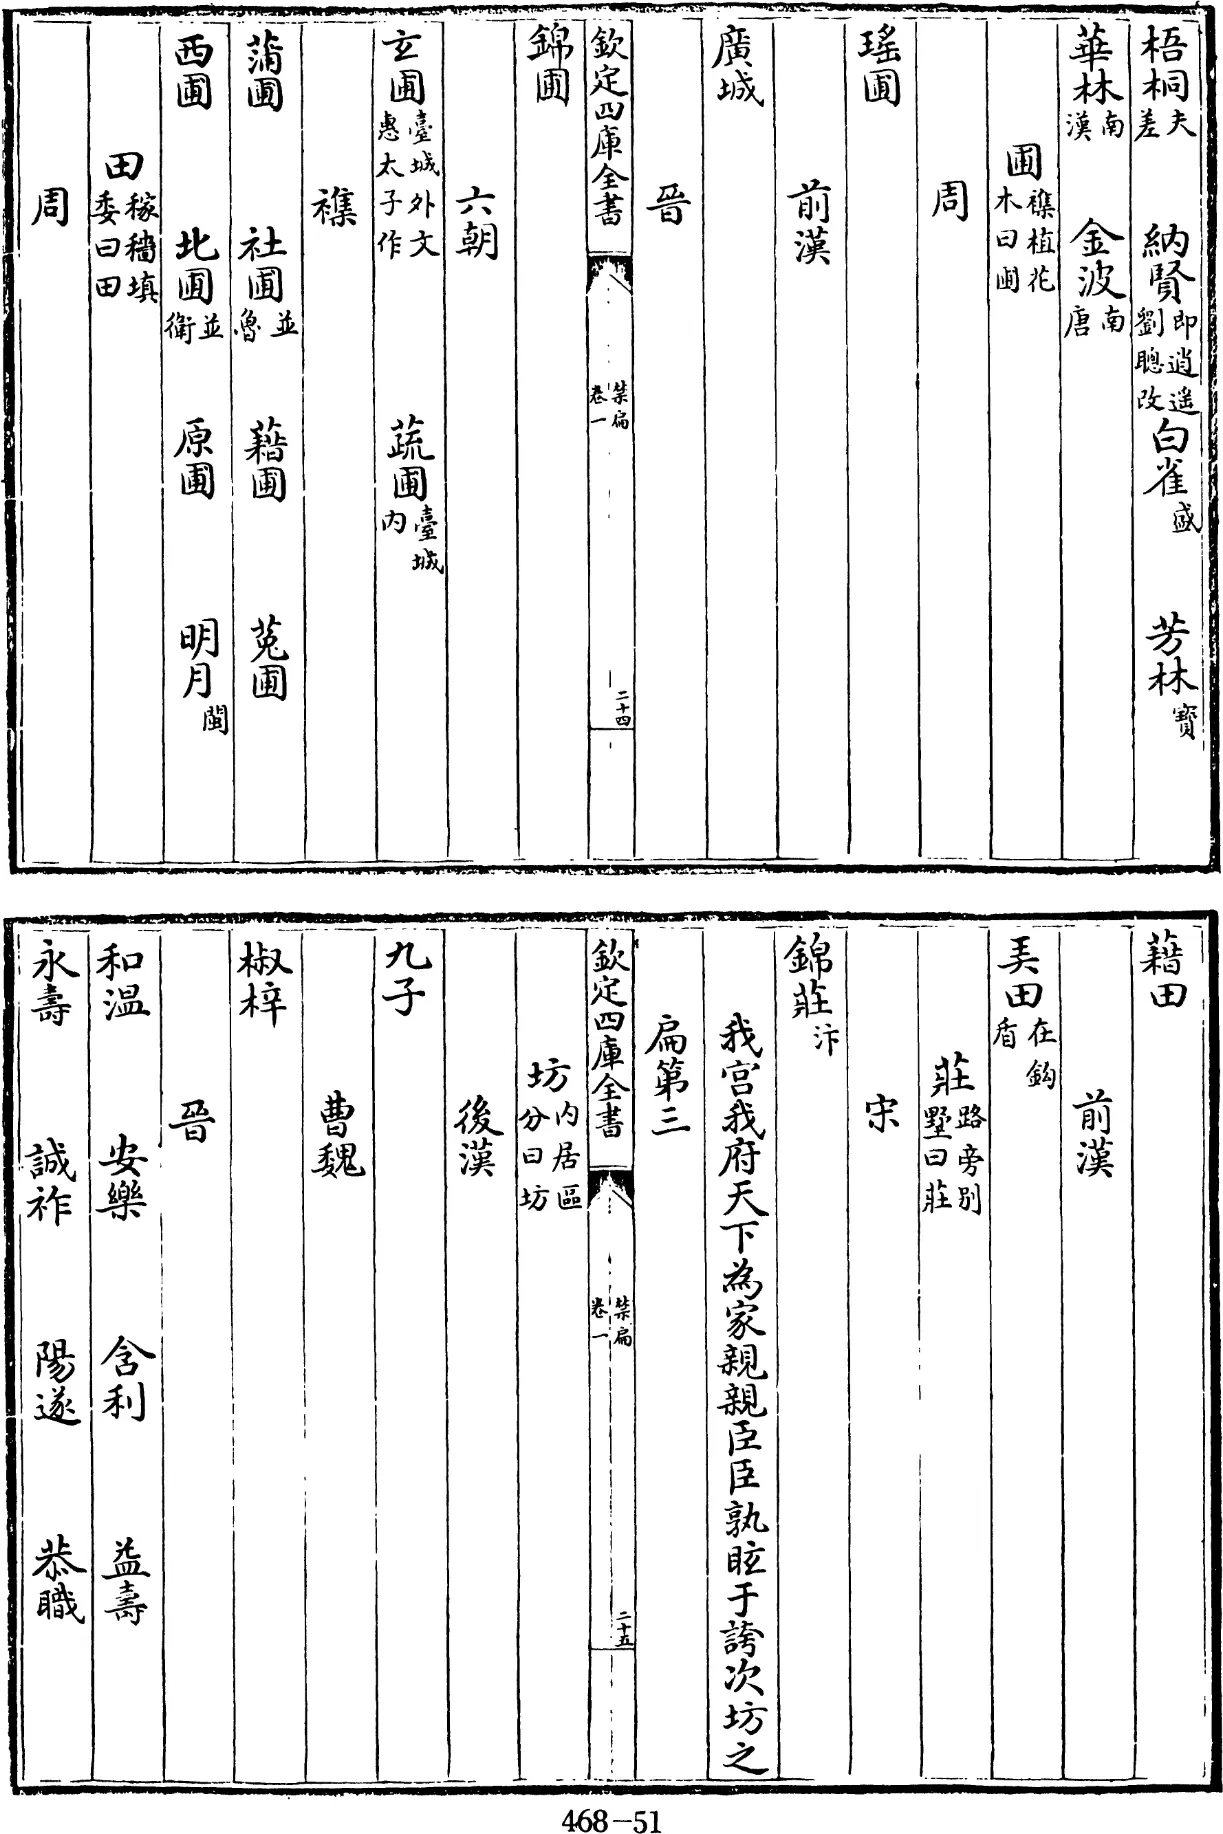 梧桐夫差 納賢即逍遥劉聰改 白雀盛 芳林寳
華林南漢 金波南唐
圃襍植花木曰圃
周
瑤圃
前漢
廣城
晉
欽定四庫全書 禁扁卷一 二十四
錦圃
六朝
玄圃臺城外文惠太子作 蔬圃臺城内
襍
蒲圃 社圃並魯 藉圃 菟圃
西圃 北圃並衛 原圃 明月閩
田稼穡填委曰田
周
藉田
前漢
美田在鈎盾
莊路旁别墅曰莊
宋
錦莊汴
我宫我府天下為家親親臣臣孰眩于誇次坊之
扁第三
欽定四庫全書 禁扁卷一 二十五
坊内居區分曰坊
後漢
九子
曹魏
椒梓
晉
和温 安樂 含利 益壽
永壽 誠祚 陽遂 恭職
468-51